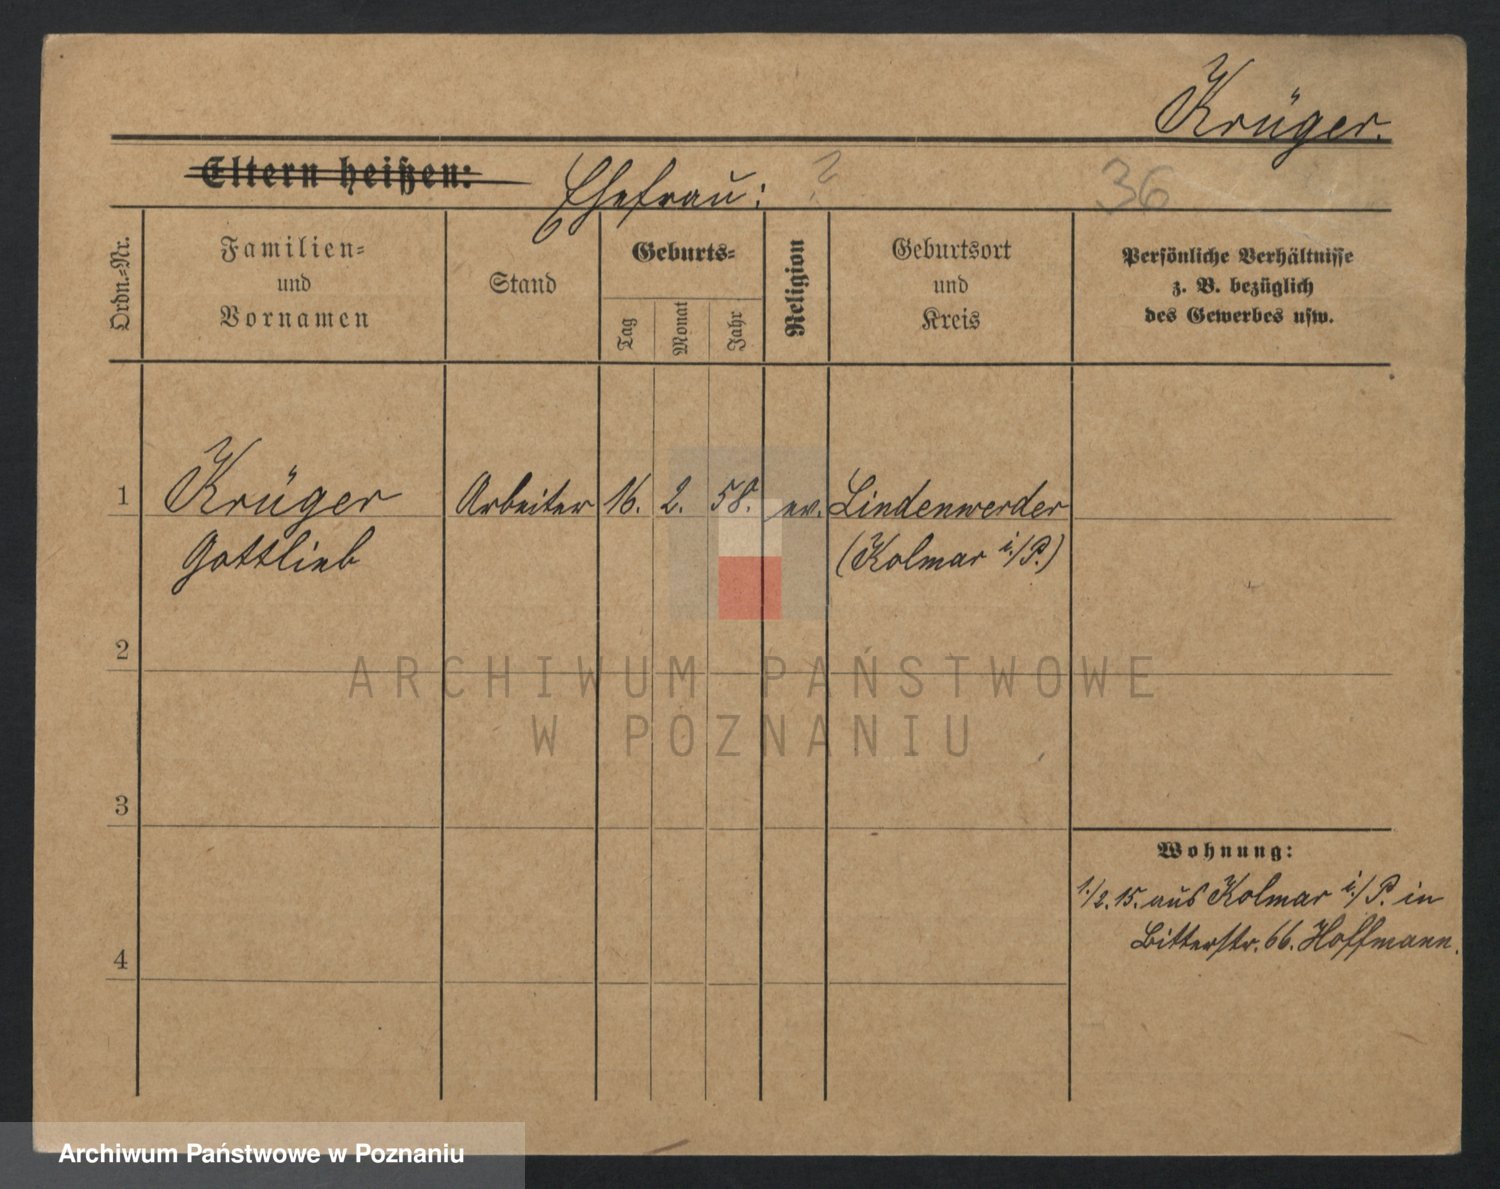 Krüger.
Eltern heißen: Ehefrau: ? 36
Ordn.=Nr.
Familien=
und
Vornamen
Stand
Geburts=
Tag
Monat
Jahr
Religion
Geburtsort
und
Kreis
Persönliche Verhältnisse
z. B. bezüglich
des Gewerbes usw.
1 Krüger Arbeiter 16. 2. 58. ev. Lindenwerder
Gottlieb (Kolmar i./P.)
2
ARCHIWUM PAŃSTWOWE
W POZNANIU
3
Wohnung:
1./2.15. aus Kolmar i./P. in
Bitterstr. 66. Hoffmann.
4
Archiwum Państwowe w Poznaniu